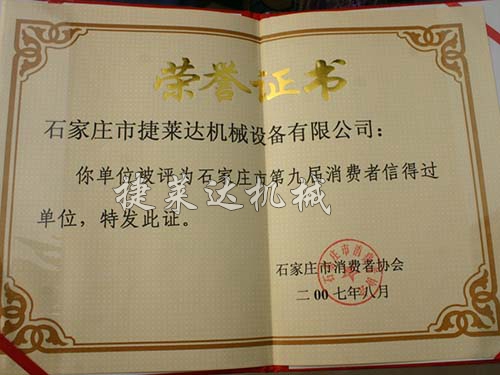 荣誉证书
石家庄市捷莱达机械设备有限公司：
你单位被评为石家庄市第九届消费者信得过
捷莱达机械
单位，特发此证。
石家庄市消费者协会
二00七年八月